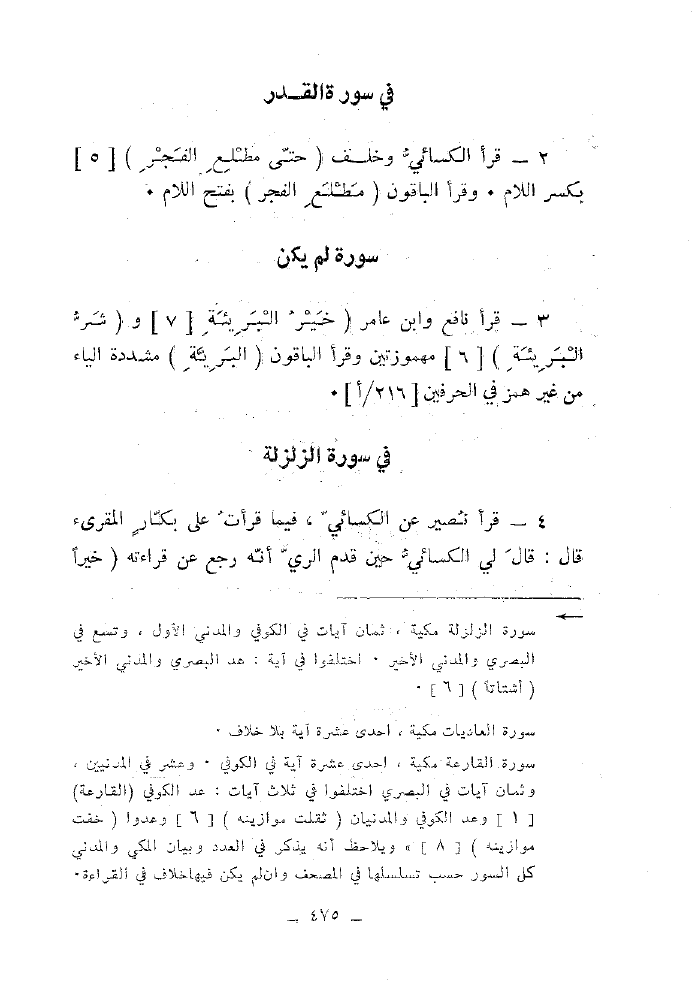 في سورة القـدر
٢ ــ قرأ الكسائيُّ وخلـف ( حتّى مطْلِعِ الفَجْرِ ) [ ٥ ]
بكسر اللام ٠ وقرأ الباقون ( مَطْلَعِ الفجر ) بفتح اللام ٠
سورة لم يكن
٣ ــ قرأ نافع وابن عامر ( خَيْرُ البَرِيئَةِ [ ٧ ] و ( شَرُّ
البَرِيئَةِ ) [ ٦ ] مهموزتين وقرأ الباقون ( البَرِيَّةِ ) مشددة الياء
من غير همز في الحرفين [ ٢١٦/أ ] ٠
في سورة الزلزلة
٤ ــ قرأ نُصير عن الكسائيّ ، فيما قرأتُ على بكّارٍ المقرىء
قال : قالَ لي الكسائيُّ حين قدم الريّ أنّه رجع عن قراءته ( خيراً
سورة الزلزلة مكية ، ثمان آيات في الكوفي والمدني الأول ، وتسع في
البصري والمدني الأخير ٠ اختلفوا في آية : عد البصري والمدني الأخير
( أشتاتاً ) [ ٦ ] ٠
سورة العاديات مكية ، احدى عشرة آية بلا خلاف ٠
سورة القارعة مكية ، احدى عشرة آية في الكوفي ٠ وعشر في المدنيين ،
وثمان آيات في البصري اختلفوا في ثلاث آيات : عد الكوفي (القارعة)
[ ١ ] وعد الكوفي والمدنيان ( ثقلت موازينه ) [ ٦ ] وعدوا ( خفت
موازينه ) [ ٨ ] » ويلاحظ أنه يذكر في العدد وبيان المكي والمدني
كل السور حسب تسلسلها في المصحف وان لم يكن فيها خلاف في القراءة٠
ــ ٤٧٥ ــ